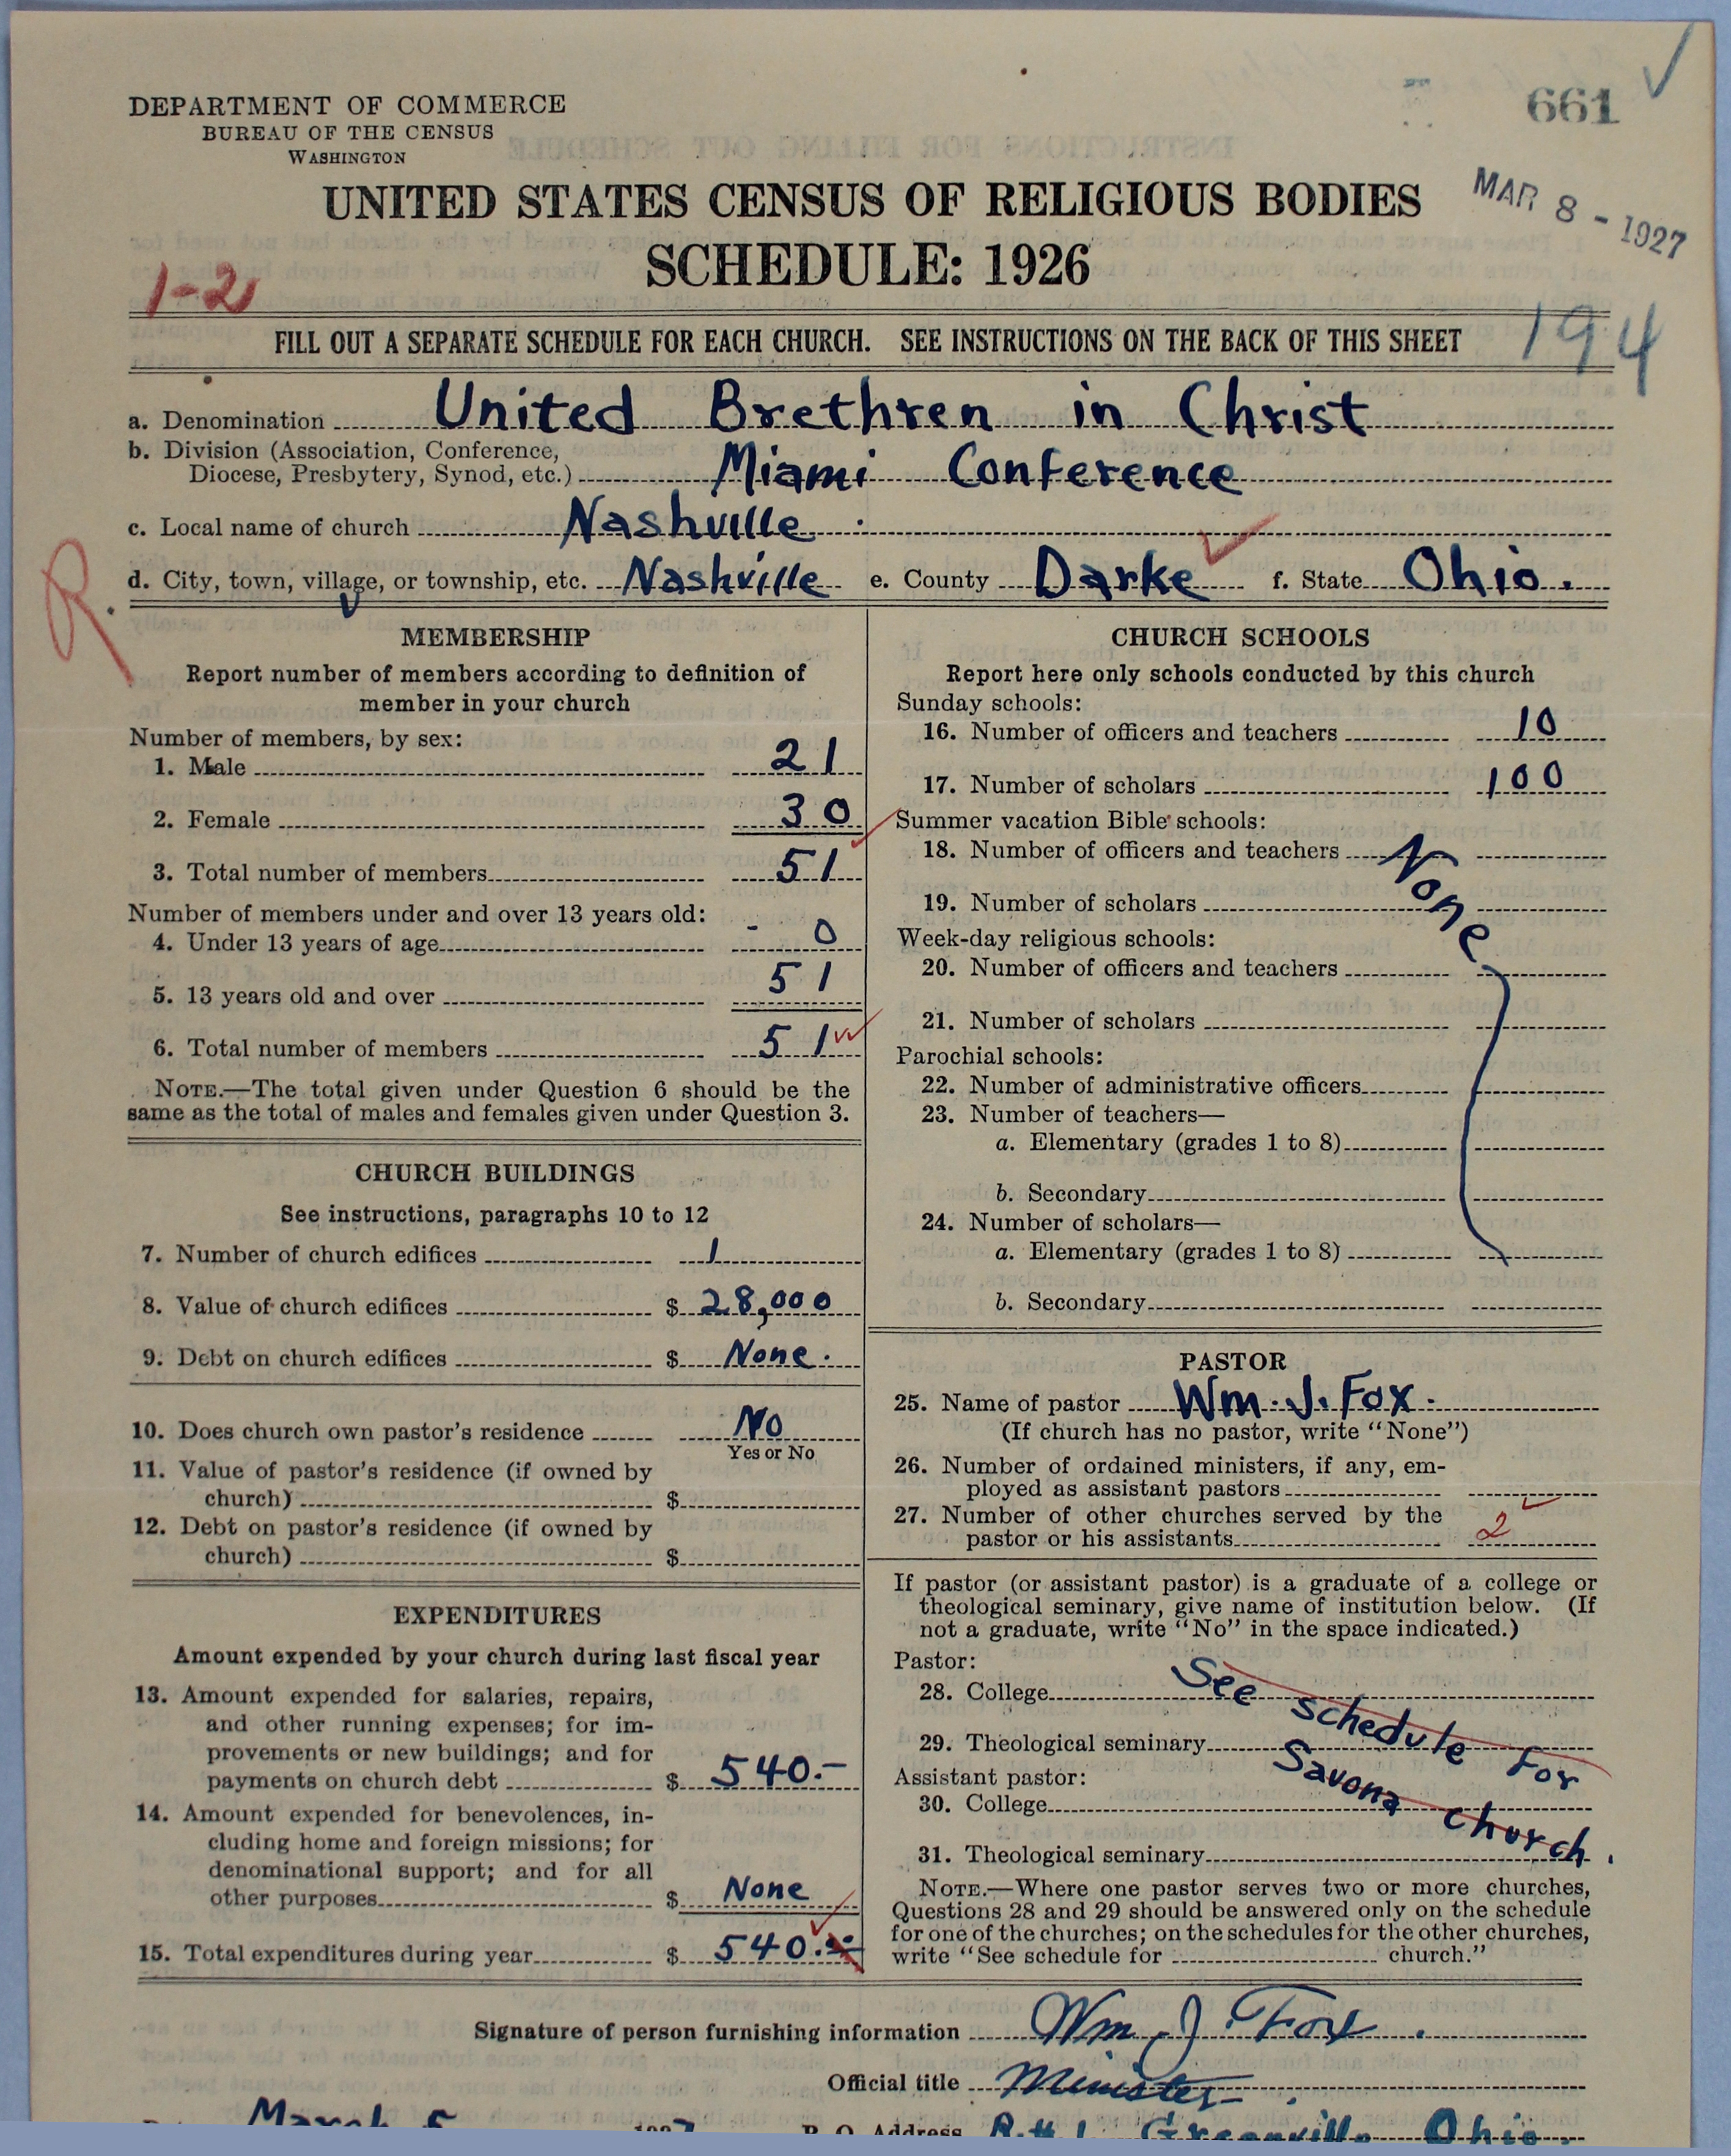 661
DEPARTMENT OF COMMERCE
BUREAU OF THE CENSUS
WASHINGTON
UNITED STATES CENSUS OF RELIGIOUS BODIES
MAR 8 - 1927
SCHEDULE: 1926
1-2
FILL OUT A SEPARATE SCHEDULE FOR EACH CHURCH. SEE INSTRUCTIONS ON THE BACK OF THIS SHEET
194
a. Denomination United Brethren in Christ
b. Division (Association, Conference,
Diocese, Presbytery, Synod, etc.) Miami Conference
c. Local name of church Nashville
d. City, town, village, or township, etc. Nashville e. County Darke f. State Ohio.
R.
MEMBERSHIP
Report number of members according to definition of
member in your church
Number of members, by sex:
1. Male 21
2. Female 30
3. Total number of members 51
Number of members under and over 13 years old:
4. Under 13 years of age - 0
5. 13 years old and over 51
6. Total number of members 51
NOTE.—The total given under Question 6 should be the
same as the total of males and females given under Question 3.
CHURCH BUILDINGS
See instructions, paragraphs 10 to 12
7. Number of church edifices 1
8. Value of church edifices $ 28,000
9. Debt on church edifices $ None.
10. Does church own pastor's residence No
Yes or No
11. Value of pastor's residence (if owned by
church) $
12. Debt on pastor's residence (if owned by
church) $
EXPENDITURES
Amount expended by your church during last fiscal year
13. Amount expended for salaries, repairs,
and other running expenses; for im-
provements or new buildings; and for
payments on church debt $ 540.–
14. Amount expended for benevolences, in-
cluding home and foreign missions; for
denominational support; and for all
other purposes $ None
15. Total expenditures during year $ 540.
CHURCH SCHOOLS
Report here only schools conducted by this church
Sunday schools:
16. Number of officers and teachers 10
17. Number of scholars 100
Summer vacation Bible schools:
18. Number of officers and teachers None
19. Number of scholars
Week-day religious schools:
20. Number of officers and teachers
21. Number of scholars
Parochial schools:
22. Number of administrative officers
23. Number of teachers—
a. Elementary (grades 1 to 8)
b. Secondary
24. Number of scholars—
a. Elementary (grades 1 to 8)
b. Secondary
PASTOR
25. Name of pastor Wm. J. Fox.
(If church has no pastor, write "None")
26. Number of ordained ministers, if any, em-
ployed as assistant pastors
27. Number of other churches served by the
pastor or his assistants 2
If pastor (or assistant pastor) is a graduate of a college or
theological seminary, give name of institution below. (If
not a graduate, write "No" in the space indicated.)
Pastor:
28. College See schedule for
29. Theological seminary Savona church.
Assistant pastor:
30. College
31. Theological seminary
NOTE.—Where one pastor serves two or more churches,
Questions 28 and 29 should be answered only on the schedule
for one of the churches; on the schedules for the other churches,
write "See schedule for church."
Signature of person furnishing information Wm J. Fox.
Official title Minister.
March 5 1927 P. O. Address R.#1. Greenville Ohio.